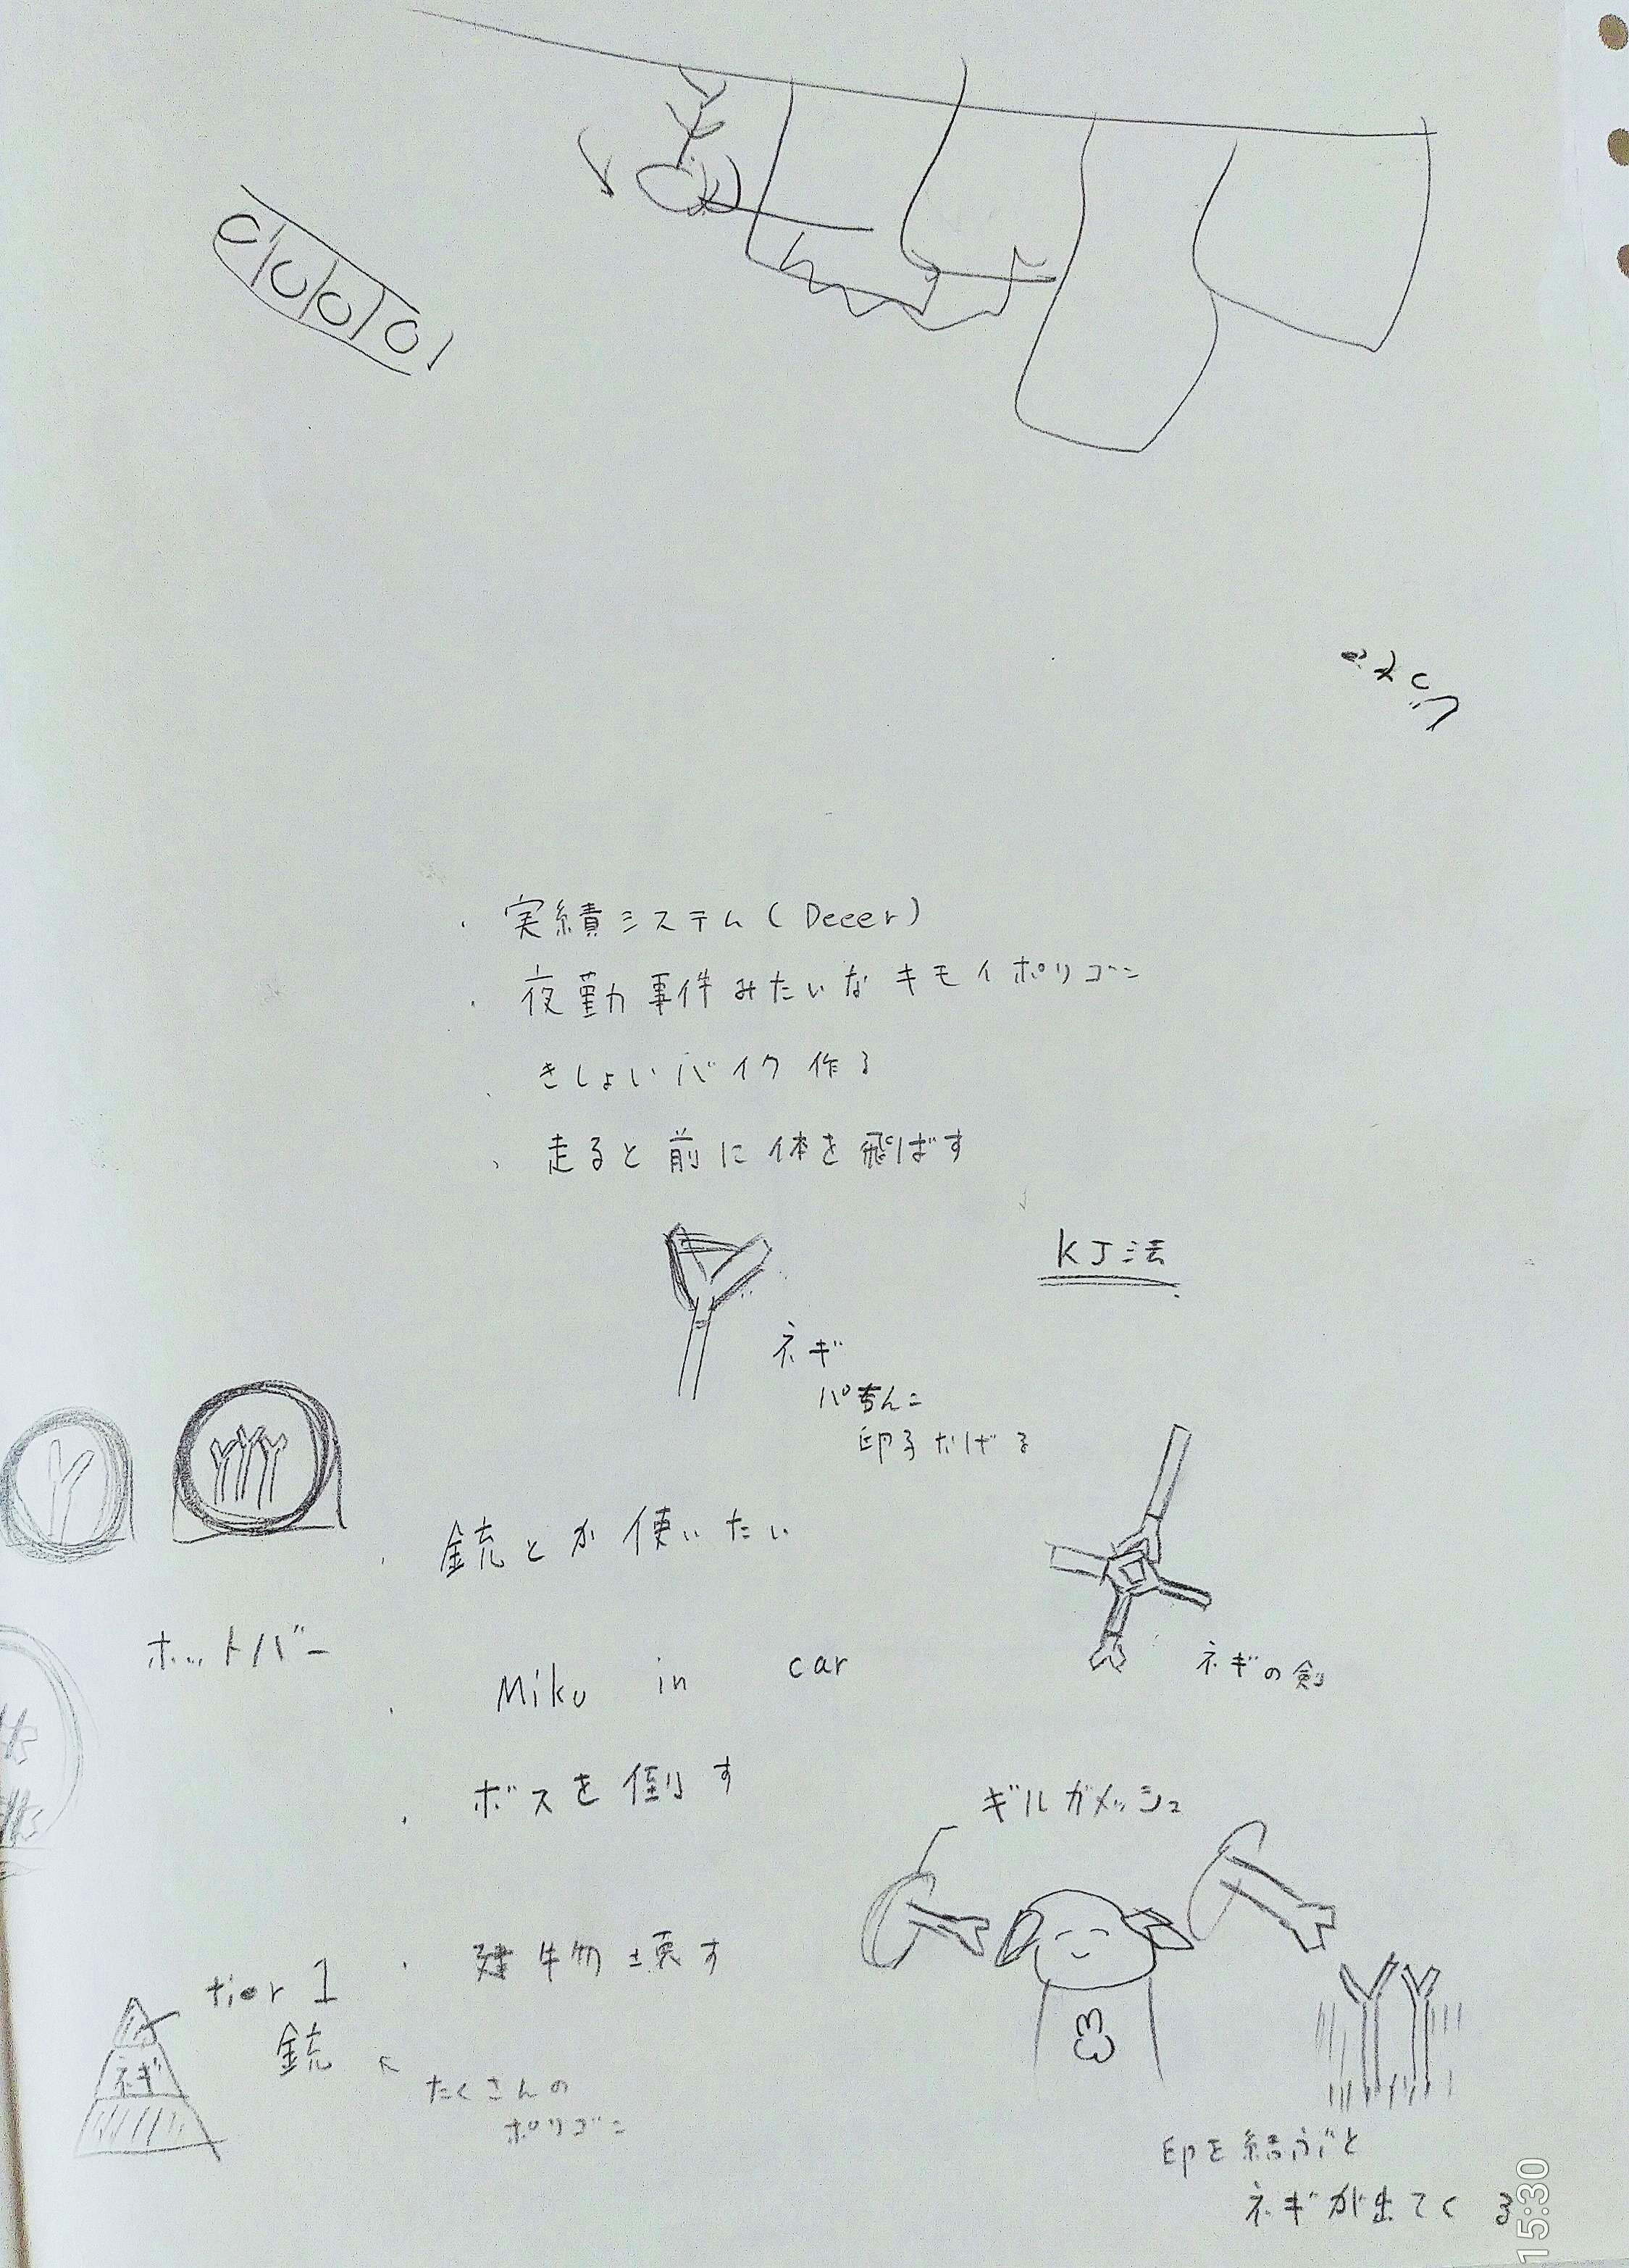 ・実績システム(Deeer)
・夜勤事件みたいなキモイポリゴン
・きしょいバイク作る
・走ると前に体を飛ばす
KJ法
ネギ
パちんこ
卵子なげる
・銃とか使いたい
ネギの剣
ホットバー
・Miku in car
・ボスを倒す
ギルガメッシュ
・建物壊す
tier 1
銃
ネギ
たくさんの
ポリゴン
印を結ぶと
ネギが出てくる
15:30